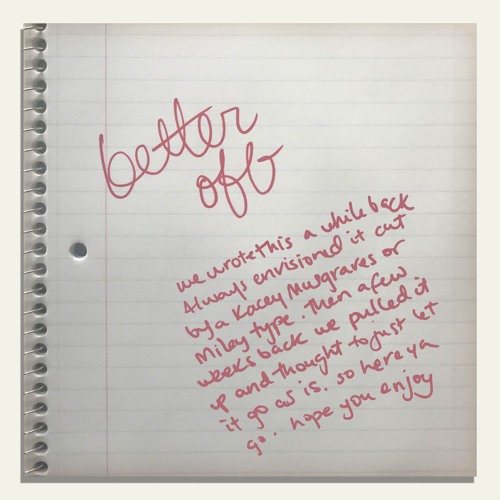 better
off
we wrote this a while back
Always envisioned it cut
by a Kacey Musgraves or
Miley type. Then a few
weeks back we pulled it
up and thought to just let
it go as is. so here ya
go. hope you enjoy